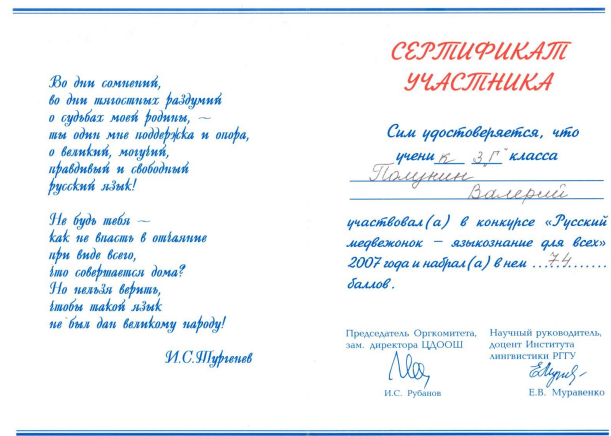 Во дни сомнений,
во дни тягостных раздумий
о судьбах моей родины, —
ты один мне поддержка и опора,
о великий, могучий,
правдивый и свободный
русский язык!
Не будь тебя —
как не впасть в отчаяние
при виде всего,
что совершается дома?
Но нельзя верить,
чтобы такой язык
не был дан великому народу!
И.С.Тургенев
СЕРТИФИКАТ
УЧАСТНИКА
Сим удостоверяется, что
учени к 3Г" класса
Полунин
Валерий
участвовал(а) в конкурсе «Русский
медвежонок – языкознание для всех»
2007 года и набрал(а) в нем ...74.........
баллов.
Председатель Оргкомитета,
зам. директора ЦДООШ
И.С. Рубанов
Научный руководитель,
доцент Института
лингвистики РГГУ
Е.В. Муравенко